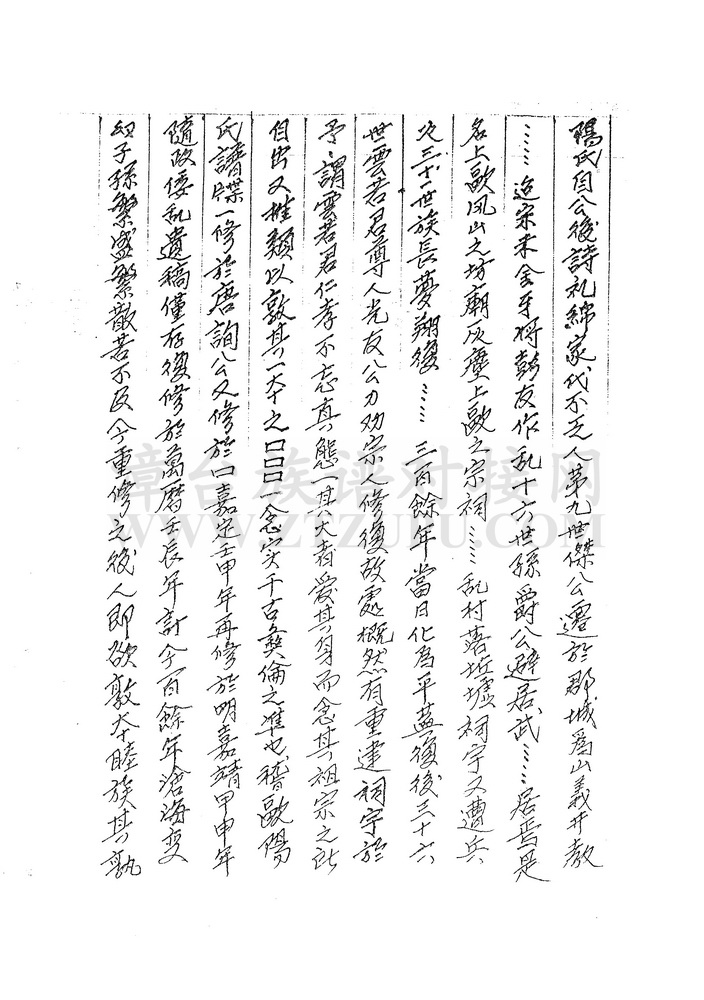 陽氏自公後詩礼綿家代不乏人第九世傑公遷於郡城烏山義井教
……迨宋末金牙將彭友作乱十六世孫爵公避居武……居焉是
名上歐凤山之坊廟灰塵上歐之宗祠……乱村落坵墟祠宇又遭兵
火三十一世族長夢翔復……三百餘年當日化為平蓋復後三十六
世雲若君尊人光友公力劝宗人修復故處概然有重建祠宇於
予〻謂雲若君仁孝不忘真態一其大者愛其身而念其祖宗之所
自出又推類以敦其一本之口口口一念实千古彝倫之準也稽歐陽
氏譜牒一修於唐詢公又修於口嘉定壬申年再修於明嘉靖甲申年
隨政倭乱遺稿僅存復修於萬曆壬辰年計今百餘年滄海变
幻子孫繁盛繁散若不及今重修之後人即欲敦本睦族其孰
章台族谱对接网
WWW.ZTZUPU.COM